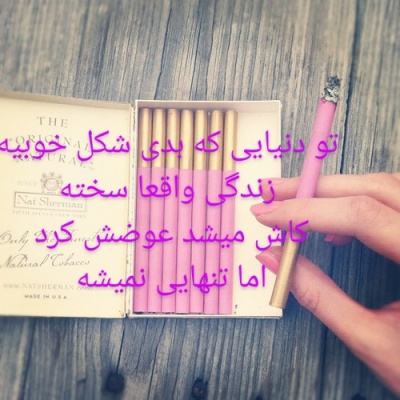 THE
ORIGINAL
Nat Sherman
Natural Tobacco
MADE IN U.S.A
تو دنیایی که بدی شکل خوبیه
زندگی واقعا سخته
کاش میشد عوضش کرد
اما تنهایی نمیشه